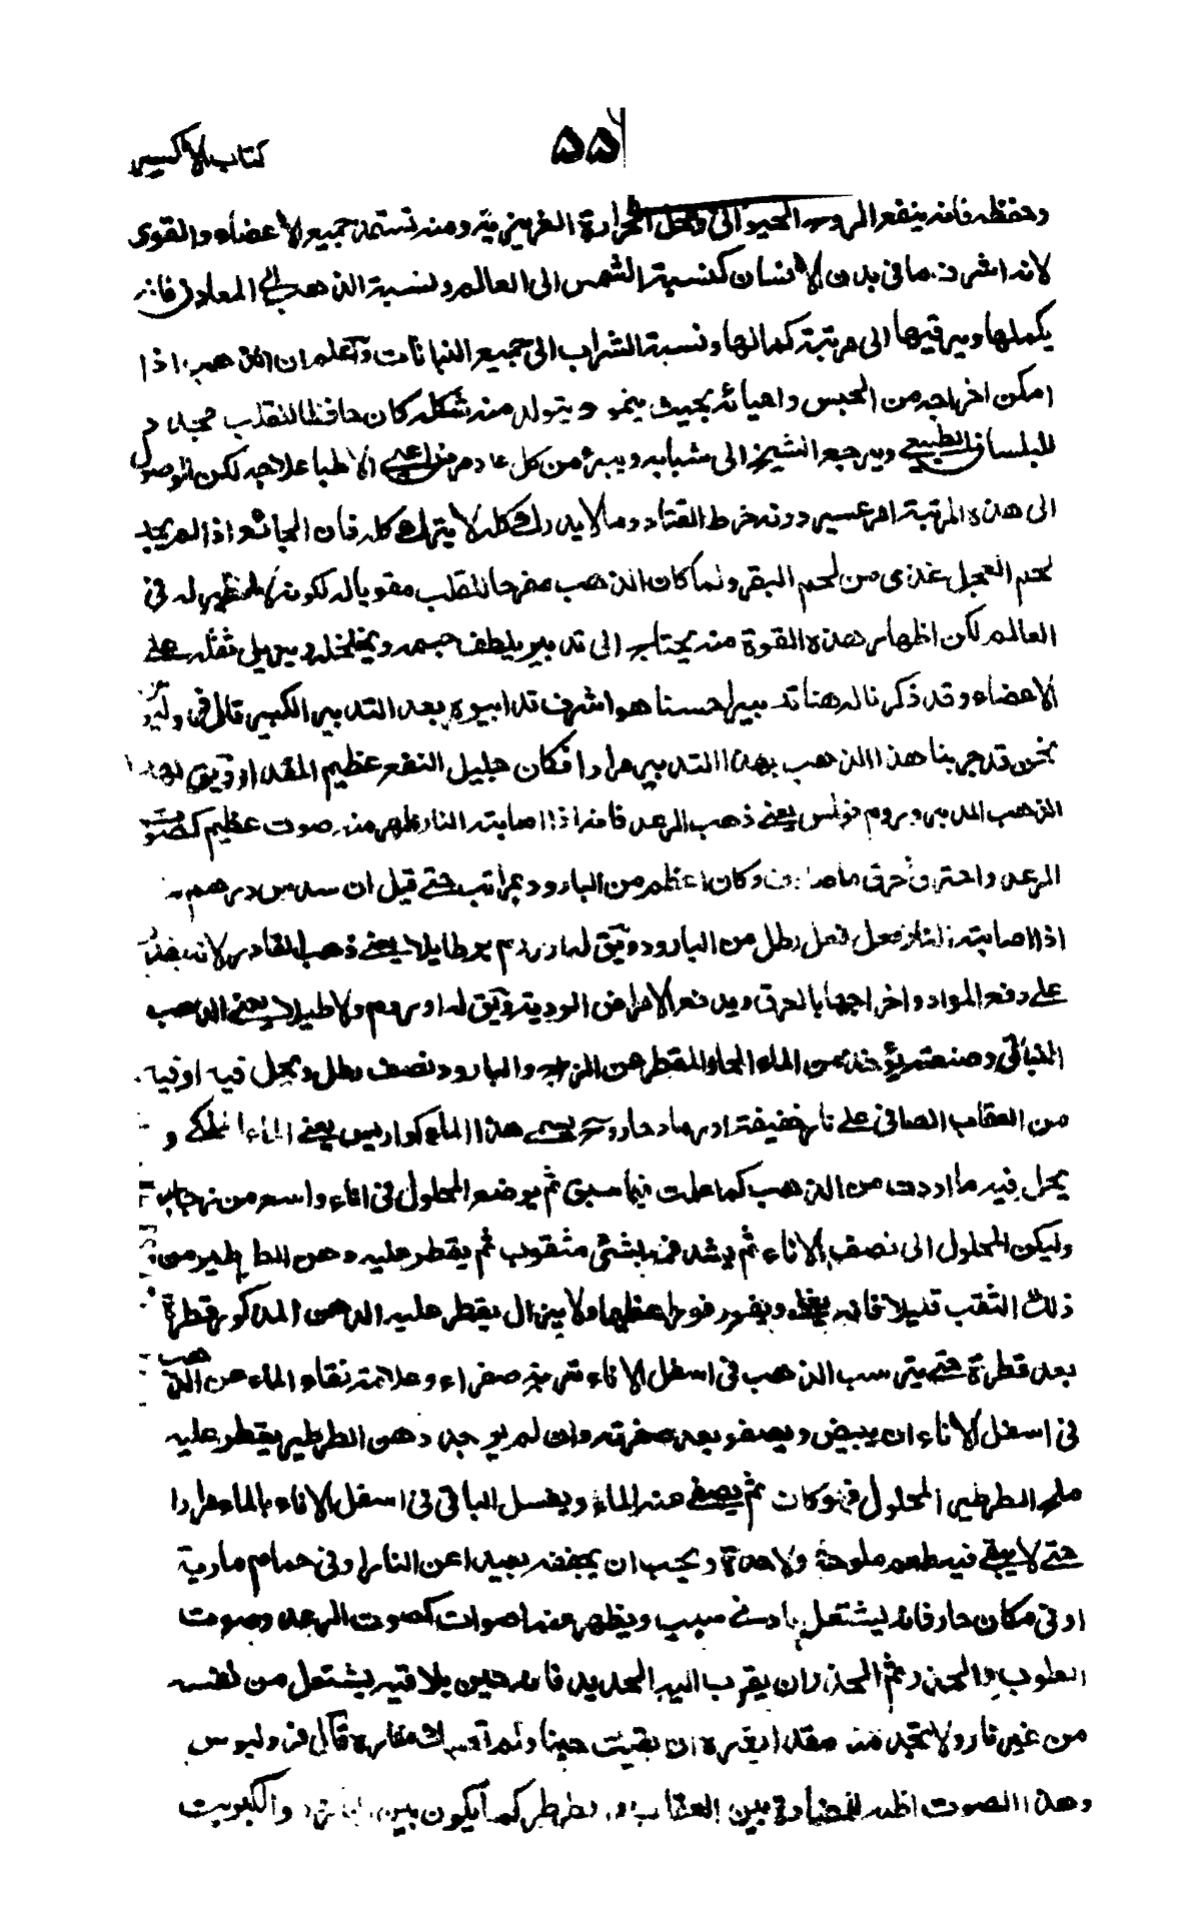 ٥٥
كتاب الاكسير
وحفظه فانه ينفع الروح الحيواني ومحل الحرارة الغريزية ومنه تستمد جميع الاعضاء والقوى
لانه اشرف ما في بدن الانسان كنسبة الشمس الى العالم ونسبة الذهب الى المعادن فانه
يكملها ويرقيها الى مرتبة كمالها ونسبة الشراب الى جميع النباتات واعلم ان الذهب اذا
امكن اخراجه من الحبس واحيائه بحيث ينمو ويتولد منه شكله كان حافظا للقلب مجدد
للبلسان الطبيعي ويرجع الشيخ الى شبابه ويبرئ من كل عاد مرض اعيى الاطبا علاجه لكن الوصول
الى هذه المرتبة امر عسير دونه خرط القتاد وما لا يدرك كله لا يترك كله فان الجائع اذا لم يجد
لحم العجل غذى من لحم البقر ولما كان الذهب مفرحا للقلب مقويا له لكونه لا نظير له في
العالم لكن اظهار هذه القوة منه يحتاج الى تدبير يلطف جسمه ويخلخله ويزيل ثقله على
الاعضاء وقد ذكرنا له هنا تدبيرا حسنا هو اشرف تدابيره بعد التدبير الكبير قال
نحن قد جربنا هذا الذهب بهذا التدبير مرارا فكان جليل النفع عظيم المقدار ويقال لهذا
الذهب المدبر وروم فولمس يعني ذهب الرعد فانه اذا اصابته النار ظهر منه صوت عظيم كصوت
الرعد واحترق خرق ما وكان اعظم من البارود بمراتب حتى قيل ان سدس درهم منه
اذا اصابته النار فعل فعل رطل من البارود ويق له يعني ذهب القادر لانه
على دفع المواد واخراجها بالعرق ويدفع الامراض الردية ويق له اوروم ولاطيلا يعني الذهب
النباتي وصنعته يؤخذ من الماء الحاد المقطر من الزاج والبارود نصف رطل ويحل فيه اوقية
من العقاب الصافي على نار خفيفة او رماد حار ويسمى هذا الماء كواريس يعني الماء الملكي و
يحل فيه ما اردت من الذهب كما علمت فيما سبق ثم يوضع المحلول في اناء واسع من زجاج
وليكن المحلول الى نصف الاناء ثم يشد فمه بشئ مثقوب ثم يقطر عليه دهن الطرطير من
ذلك الثقب قليلا فانه يغلى ويفور فورا عظيما ولا يزال يقطر عليه الدهن المذكور قطرة
بعد قطرة حتى يترسب الذهب في اسفل الاناء صفراء وعلامة نقاء الماء من الذهب
في اسفل الاناء ان يبيض ويصفو بعد صفرته وان لم يوجد دهن الطرطير يقطر عليه
ملح الطرطير المحلول ثم يصفى عنه الماء ويغسل الباقي في اسفل الاناء بالماء مرارا
حتى لا يبقى فيه طعم ملوحة ولا حدة ويجب ان يجففه بعيدا عن النار او في حمام مارية
او في مكان حار فانه ليشتعل بادنى سبب ويظهر منه اصوات كصوت الرعد وصوت
الطوب والحذر ثم الحذر ان يقرب اليه الحديد فانه حين يلاقيه يشتعل من نفسه
من غير نار ولا تجد منه مقدار ذرة ان بقيت حينا ولم تصبك مضارة قال فرولیوس
وهذا الصوت اظنه للمضادة بين العقاب والطرطر كما يكون بين والكبريت